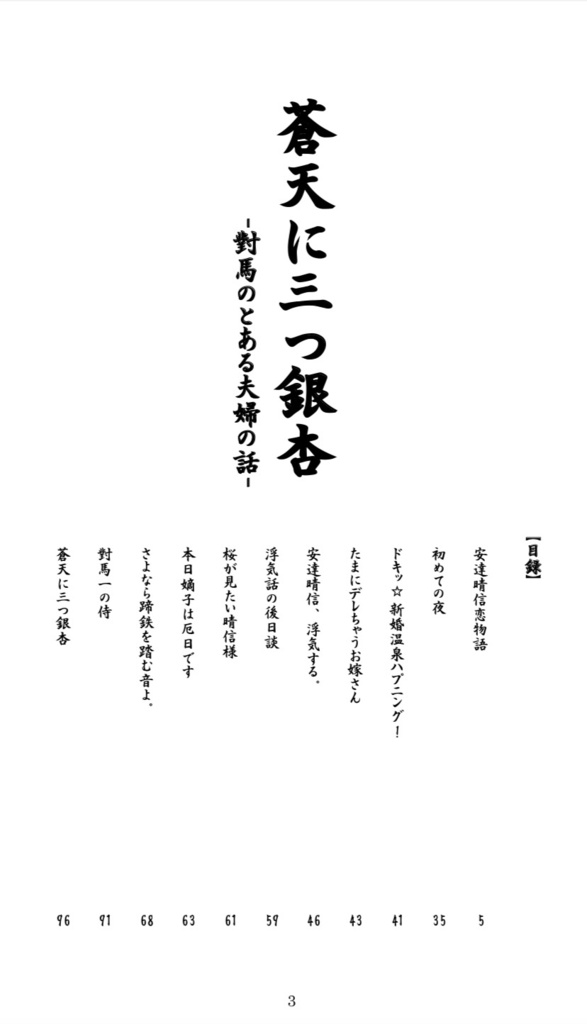 蒼天に三つ銀杏
-對馬のとある夫婦の話-
【目録】
安達晴信恋物語 5
初めての夜 35
ドキッ☆新婚温泉ハプニング! 41
たまにデレちゃうお嫁さん 43
安達晴信、浮気する。 46
浮気話の後日談 59
桜が見たい晴信様 61
本日嫡子は厄日です 63
さよなら蹄鉄を踏む音よ。 68
對馬一の侍 91
蒼天に三つ銀杏 96
3